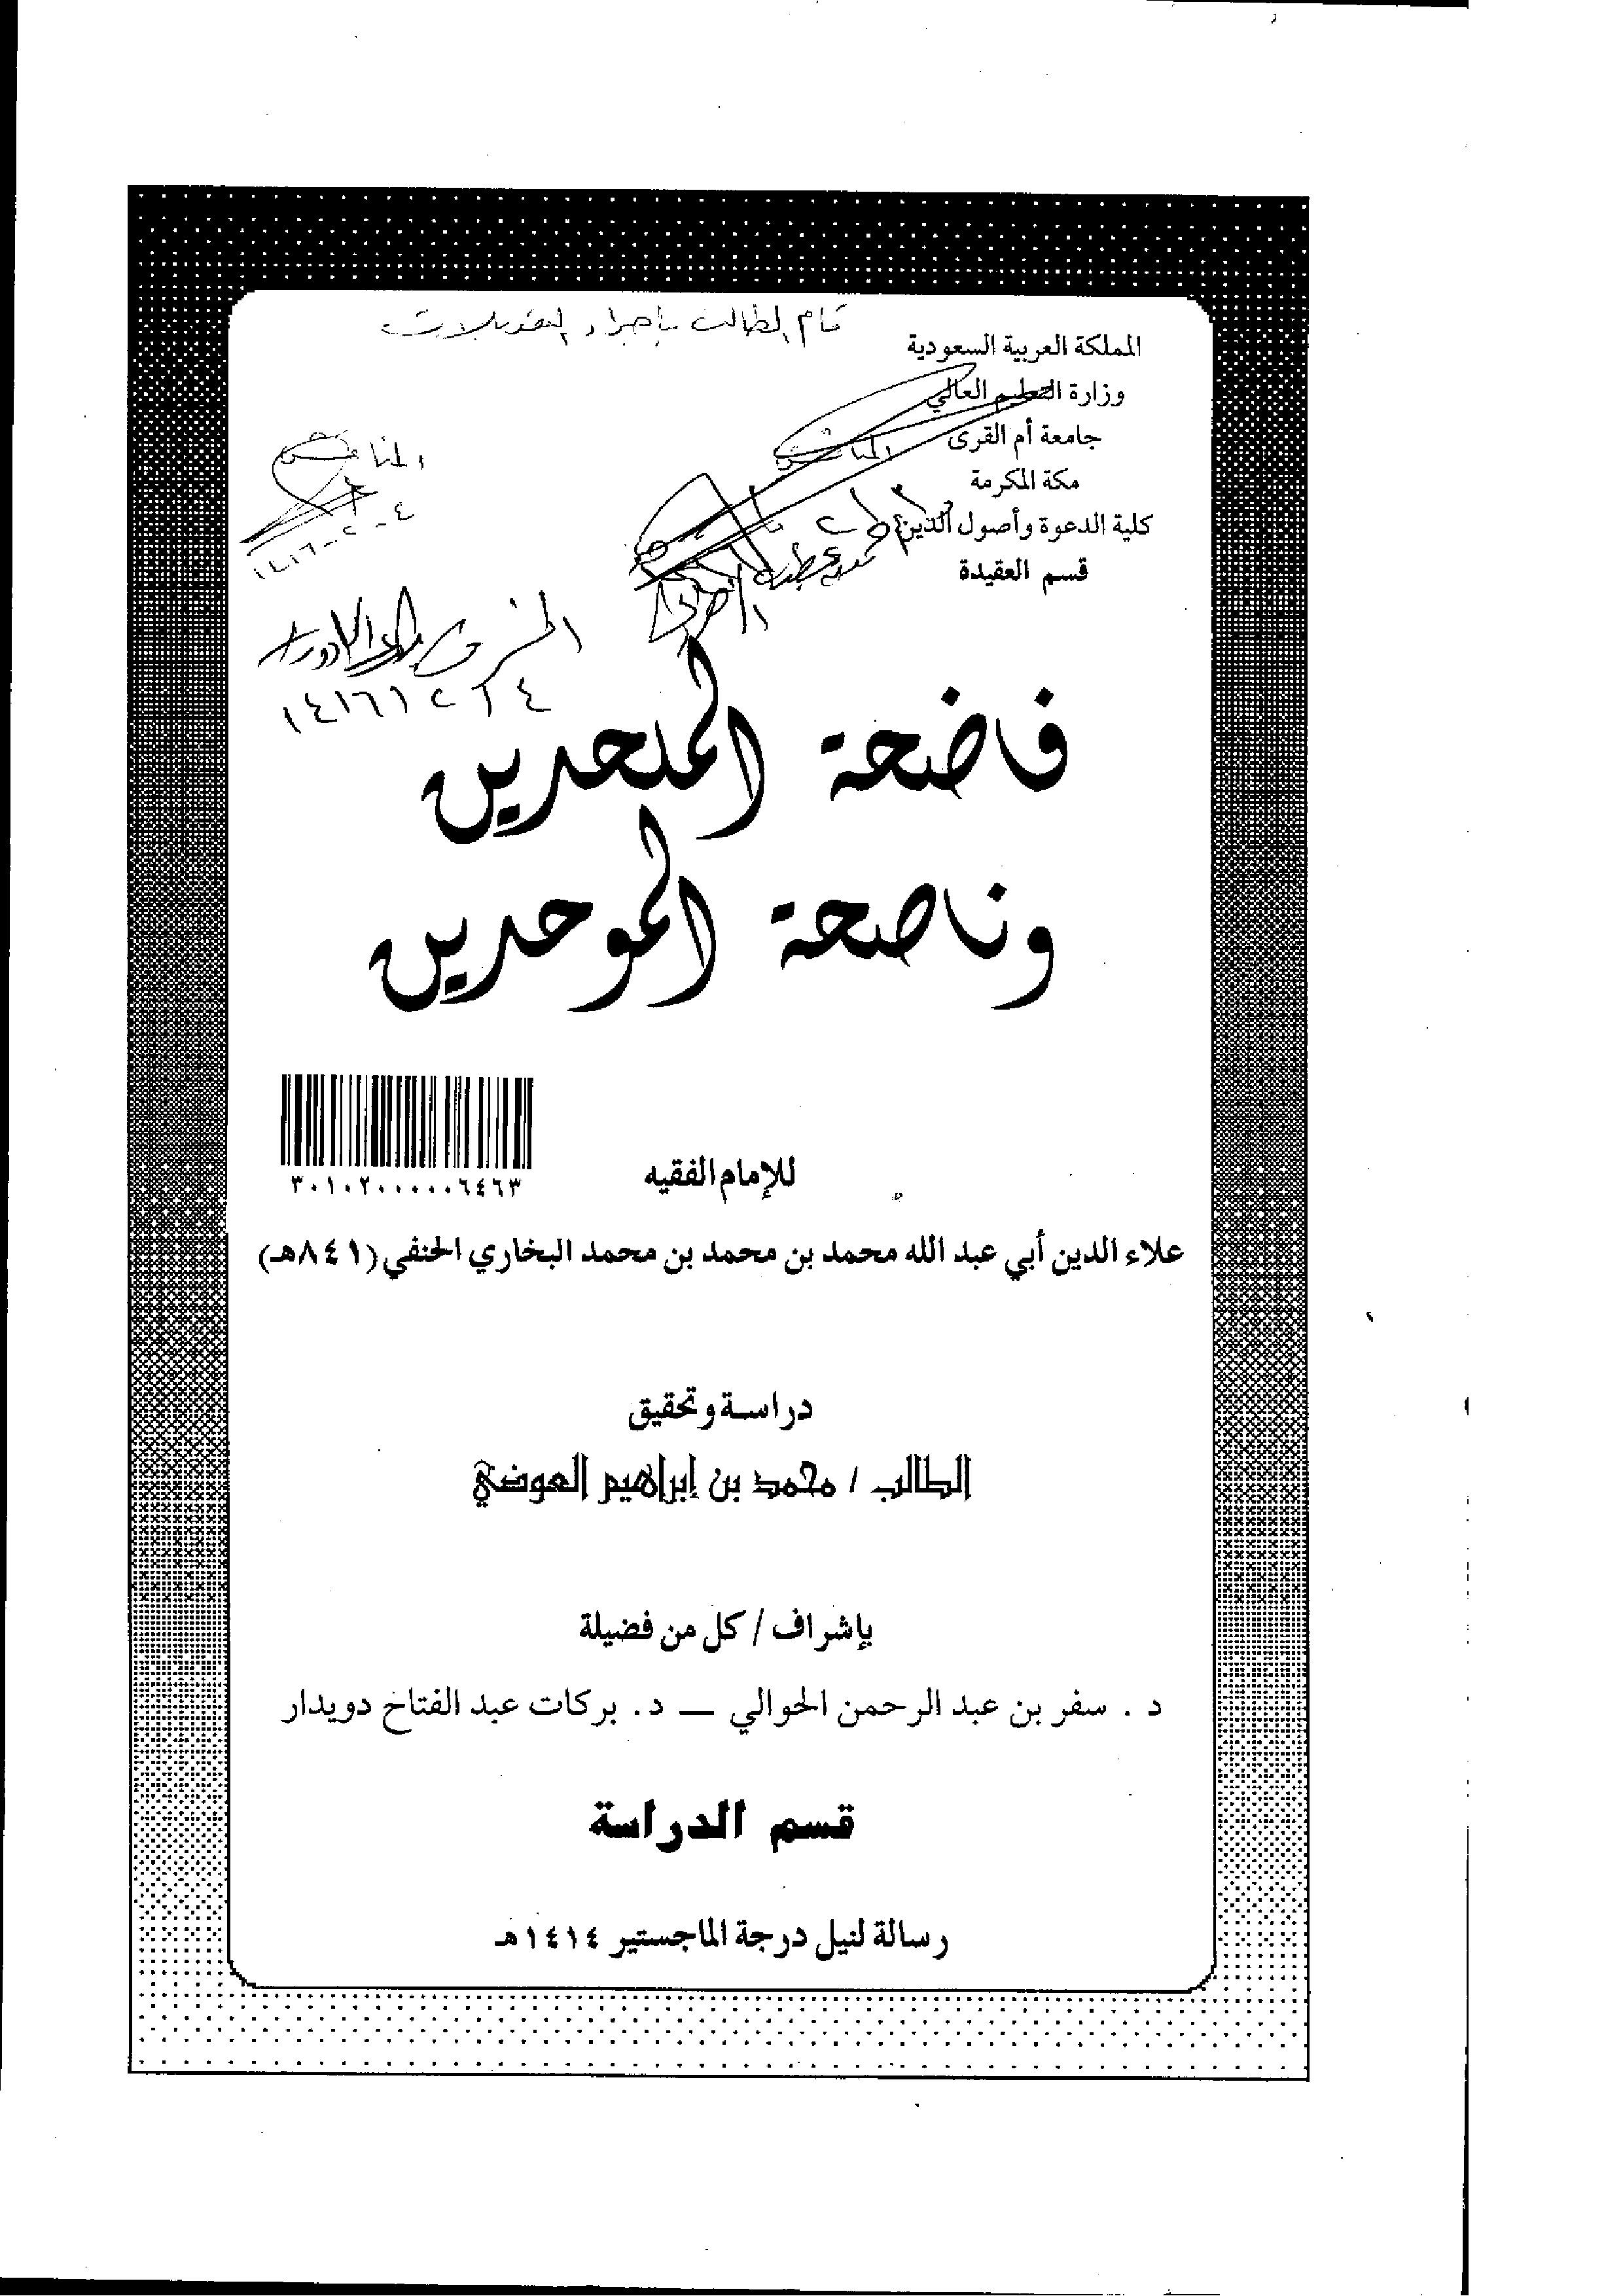 قام الطالب بإجراء التعديلات
المملكة العربية السعودية
وزارة التعليم العالي
جامعة أم القرى
مكة المكرمة
كلية الدعوة وأصول الدين
قسم العقيدة
المناقش
المناقش
٤-٢-١٤١٦
المشرف
٤/٢/١٤١٦
فاضحة الملحدين
وناصحة الموحدين
٣٠١٠٢٠٠٠٠٠٦٤٦٣
للإمام الفقيه
علاء الدين أبي عبد الله محمد بن محمد بن محمد البخاري الحنفي (٨٤١هـ)
دراسة وتحقيق
الطالب / محمد بن إبراهيم العوضي
بإشراف / كل من فضيلة
د . سفر بن عبد الرحمن الحوالي — د. بركات عبد الفتاح دويدار
قسم الدراسة
رسالة لنيل درجة الماجستير ١٤١٤هـ